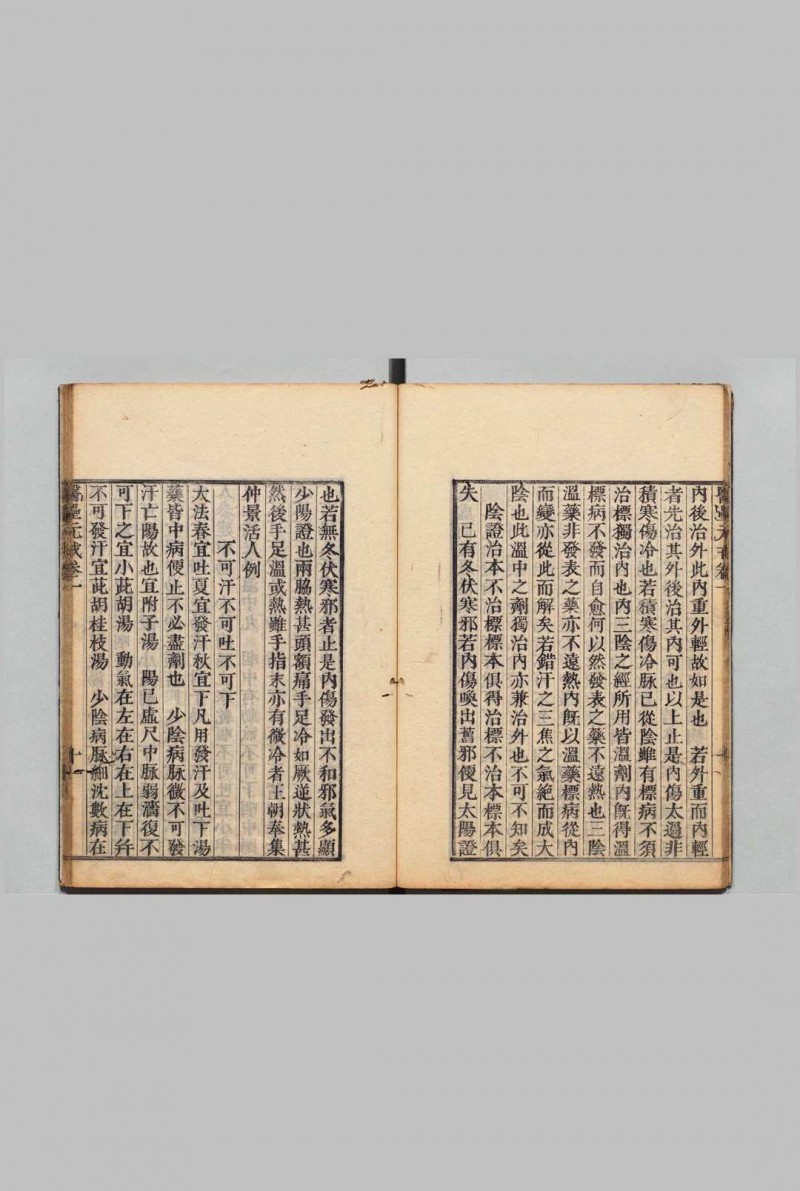 內後治外此內重外輕故如是也　若外重而內輕
者先治其外後治其內可也以上止是內傷太過非
積寒傷冷也若積寒傷冷脉已從陰雖有標病不須
治標獨治內也內三陰之經所用皆溫劑內旣得溫
標病不發而自愈何以然發表之藥不遠熱也三陰
溫藥非發表之藥亦不遠熱內旣以溫藥標病從內
而變亦從此而解矣若錯汗之三焦之氣絕而成大
陰也此溫中之劑獨治內亦兼治外也不可不知矣
陰證治本不治標標本俱得治標不治本標本俱
失　已有冬伏寒邪若內傷喚出舊邪傻見太陽證
也若無冬伏寒邪者止是內傷發出不和邪氣多顯
少陽證也兩脇熱甚頭額痛手足冷如厥逆狀熱甚
然後手足溫或熱雖手指末亦有微冷者王朝奉集
仲景活人例
不可汗不可吐不可下
大法春宜吐夏宜發汗秋宜下凡用發汗及吐下湯
藥皆中病傻止不必盡劑也　少陰病脉微不可發
汗亡陽故也宜附子湯　陽已虛尺中脉弱濇復不
可下之宜小茈胡湯　動氣在左在右在上在下幷
不可發汗宜茈胡桂枝湯　少陰病脉細沈數病在
卷一
十一